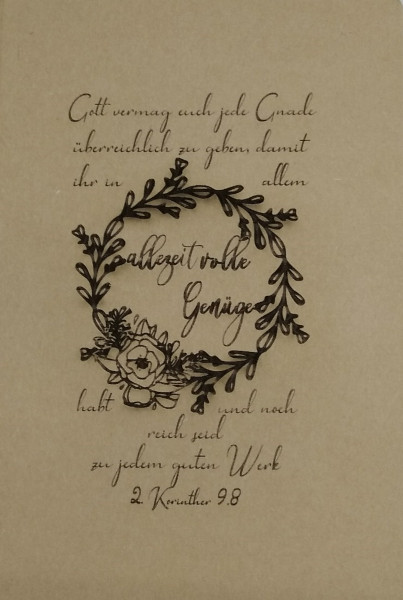 Gott vermag euch jede Gnade
überreichlich zu geben, damit
ihr in allem
allezeit volle
Genüge
habt und noch
reich seid
zu jedem guten Werk
2. Korinther 9.8